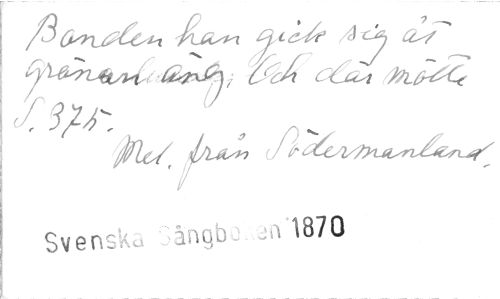 Bonden han gick sig åt
grönan äng, Och där mötte
S. 375.
Mel. från Södermanland.
Svenska Sångboken 1870